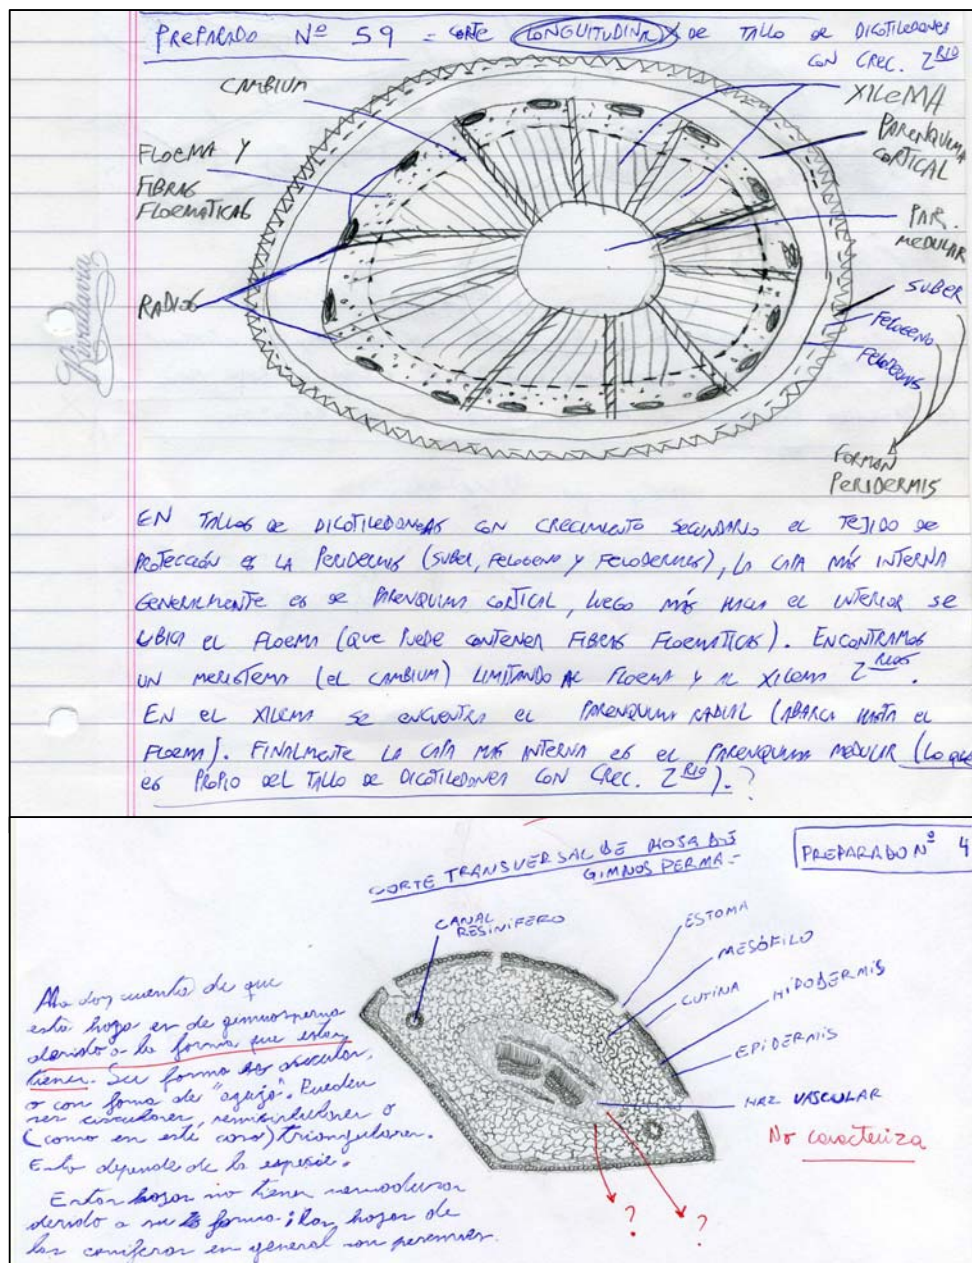 PREPARADO Nº 59 = CORTE LONGUITUDINAL DE TALLO DE DICOTILEDONES
CON CREC. 2RIO
CAMBIUM
XILEMA
PARENQUIMA
CORTICAL
FLOEMA Y
FIBRAS
FLOEMATICAS
PAR.
MEDULAR
RADIOS
SUBER
FELOGENO
FELODERMIS
FORMAN
PERIDERMIS
Rivadavia
EN TALLOS DE DICOTILEDONEAS CON CRECIMIENTO SECUNDARIO EL TEJIDO DE
PROTECCIÓN ES LA PERIDERMIS (SUBER, FELOGENO Y FELODERMIS), LA CAPA MÁS INTERNA
GENERALMENTE ES DE PARENQUIMA CORTICAL, LUEGO MÁS HACIA EL INTERIOR SE
UBICA EL FLOEMA (QUE PUEDE CONTENER FIBRAS FLOEMATICAS). ENCONTRAMOS
UN MERISTEMA (EL CAMBIUM) LIMITANDO AL FLOEMA Y AL XILEMA 2RIOS.
EN EL XILEMA SE ENCUENTRA EL PARENQUIMA RADIAL (ABARCA HASTA EL
FLOEMA). FINALMENTE LA CAPA MAS INTERNA ES EL PARENQUIMA MEDULAR (LO QUE
ES PROPIO DEL TALLO DE DICOTILEDONES CON CREC. 2RIO). ?
CORTE TRANSVERSAL DE HOJA DE
GIMNOSPERMA -
PREPARADO Nº 4
CANAL
RESINIFERO
ESTOMA
MESÓFILO
CUTINA
HIPODERMIS
EPIDERMIS
HAZ VASCULAR
No caracteriza
? ?
Me doy cuenta de que
esta hoja es de gimnosperma
debido a la forma que estas
tienen. Su forma es acicular,
o con forma de "aguja". Pueden
ser circulares, semicirculares o
(como en este caso) triangulares.
Esto depende de la especie.
Estas hojas no tienen nervaduras
debido a su forma; las hojas de
las coniferas en general son perennes.